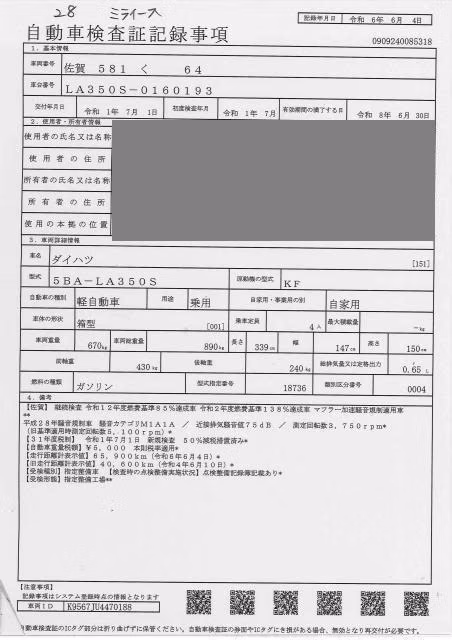 28 ミライース
記録年月日 令和 6年 6月 4日
自動車検査証記録事項
0909240085318
1. 基本情報
車両番号 佐賀 581 く 64
車台番号 LA350S-0160193
交付年月日 令和 1年 7月 1日 初度検査年月 令和 1年 7月 有効期間の満了する日 令和 8年 6月 30日
2. 使用者・所有者情報
使用者の氏名又は名称
使用者の住所
所有者の氏名又は名称
所有者の住所
使用の本拠の位置
3. 車両詳細情報
車名 ダイハツ [151]
型式 5BA-LA350S 原動機の型式 KF
自動車の種別 軽自動車 用途 乗用 自家用・事業用の別 自家用
車体の形状 箱型 [001] 乗車定員 4人 最大積載量 -kg
車両重量 670kg 車両総重量 890kg 長さ 339cm 幅 147cm 高さ 150cm
前軸重 430kg 後軸重 240kg 総排気量又は定格出力 0.65L
燃料の種類 ガソリン 型式指定番号 18736 類別区分番号 0004
4. 備考
【佐賀】 継続検査 令和12年度燃費基準85%達成車 令和2年度燃費基準138%達成車 マフラー加速騒音規制適用車
**
平成28年騒音規制車 騒音カテゴリM1A1A / 近接排気騒音値75dB / 測定回転数3,750rpm*
(旧基準適用時測定回転数5,100rpm)*
【31年度税制】 令和1年7月1日 新規検査 50%減税措置済み*
【自動車重量税額】 ¥5,000 本則税率適用*
【走行距離計表示値】 65,900km(令和6年6月4日)*
【旧走行距離計表示値】 40,600km(令和4年6月10日)*
【受検種別】指定整備車 【検査時の点検整備実施状況】点検整備記録簿記載あり*
【受検形態】指定整備工場**
【注意事項】
記録事項はシステム登録時点の情報となります
車両ID K9567JU4470188
自動車検査証のICタグ部分は折り曲げずに保管ください。自動車検査証の券面やICタグにき損がある場合、無効となり再交付が必要です。